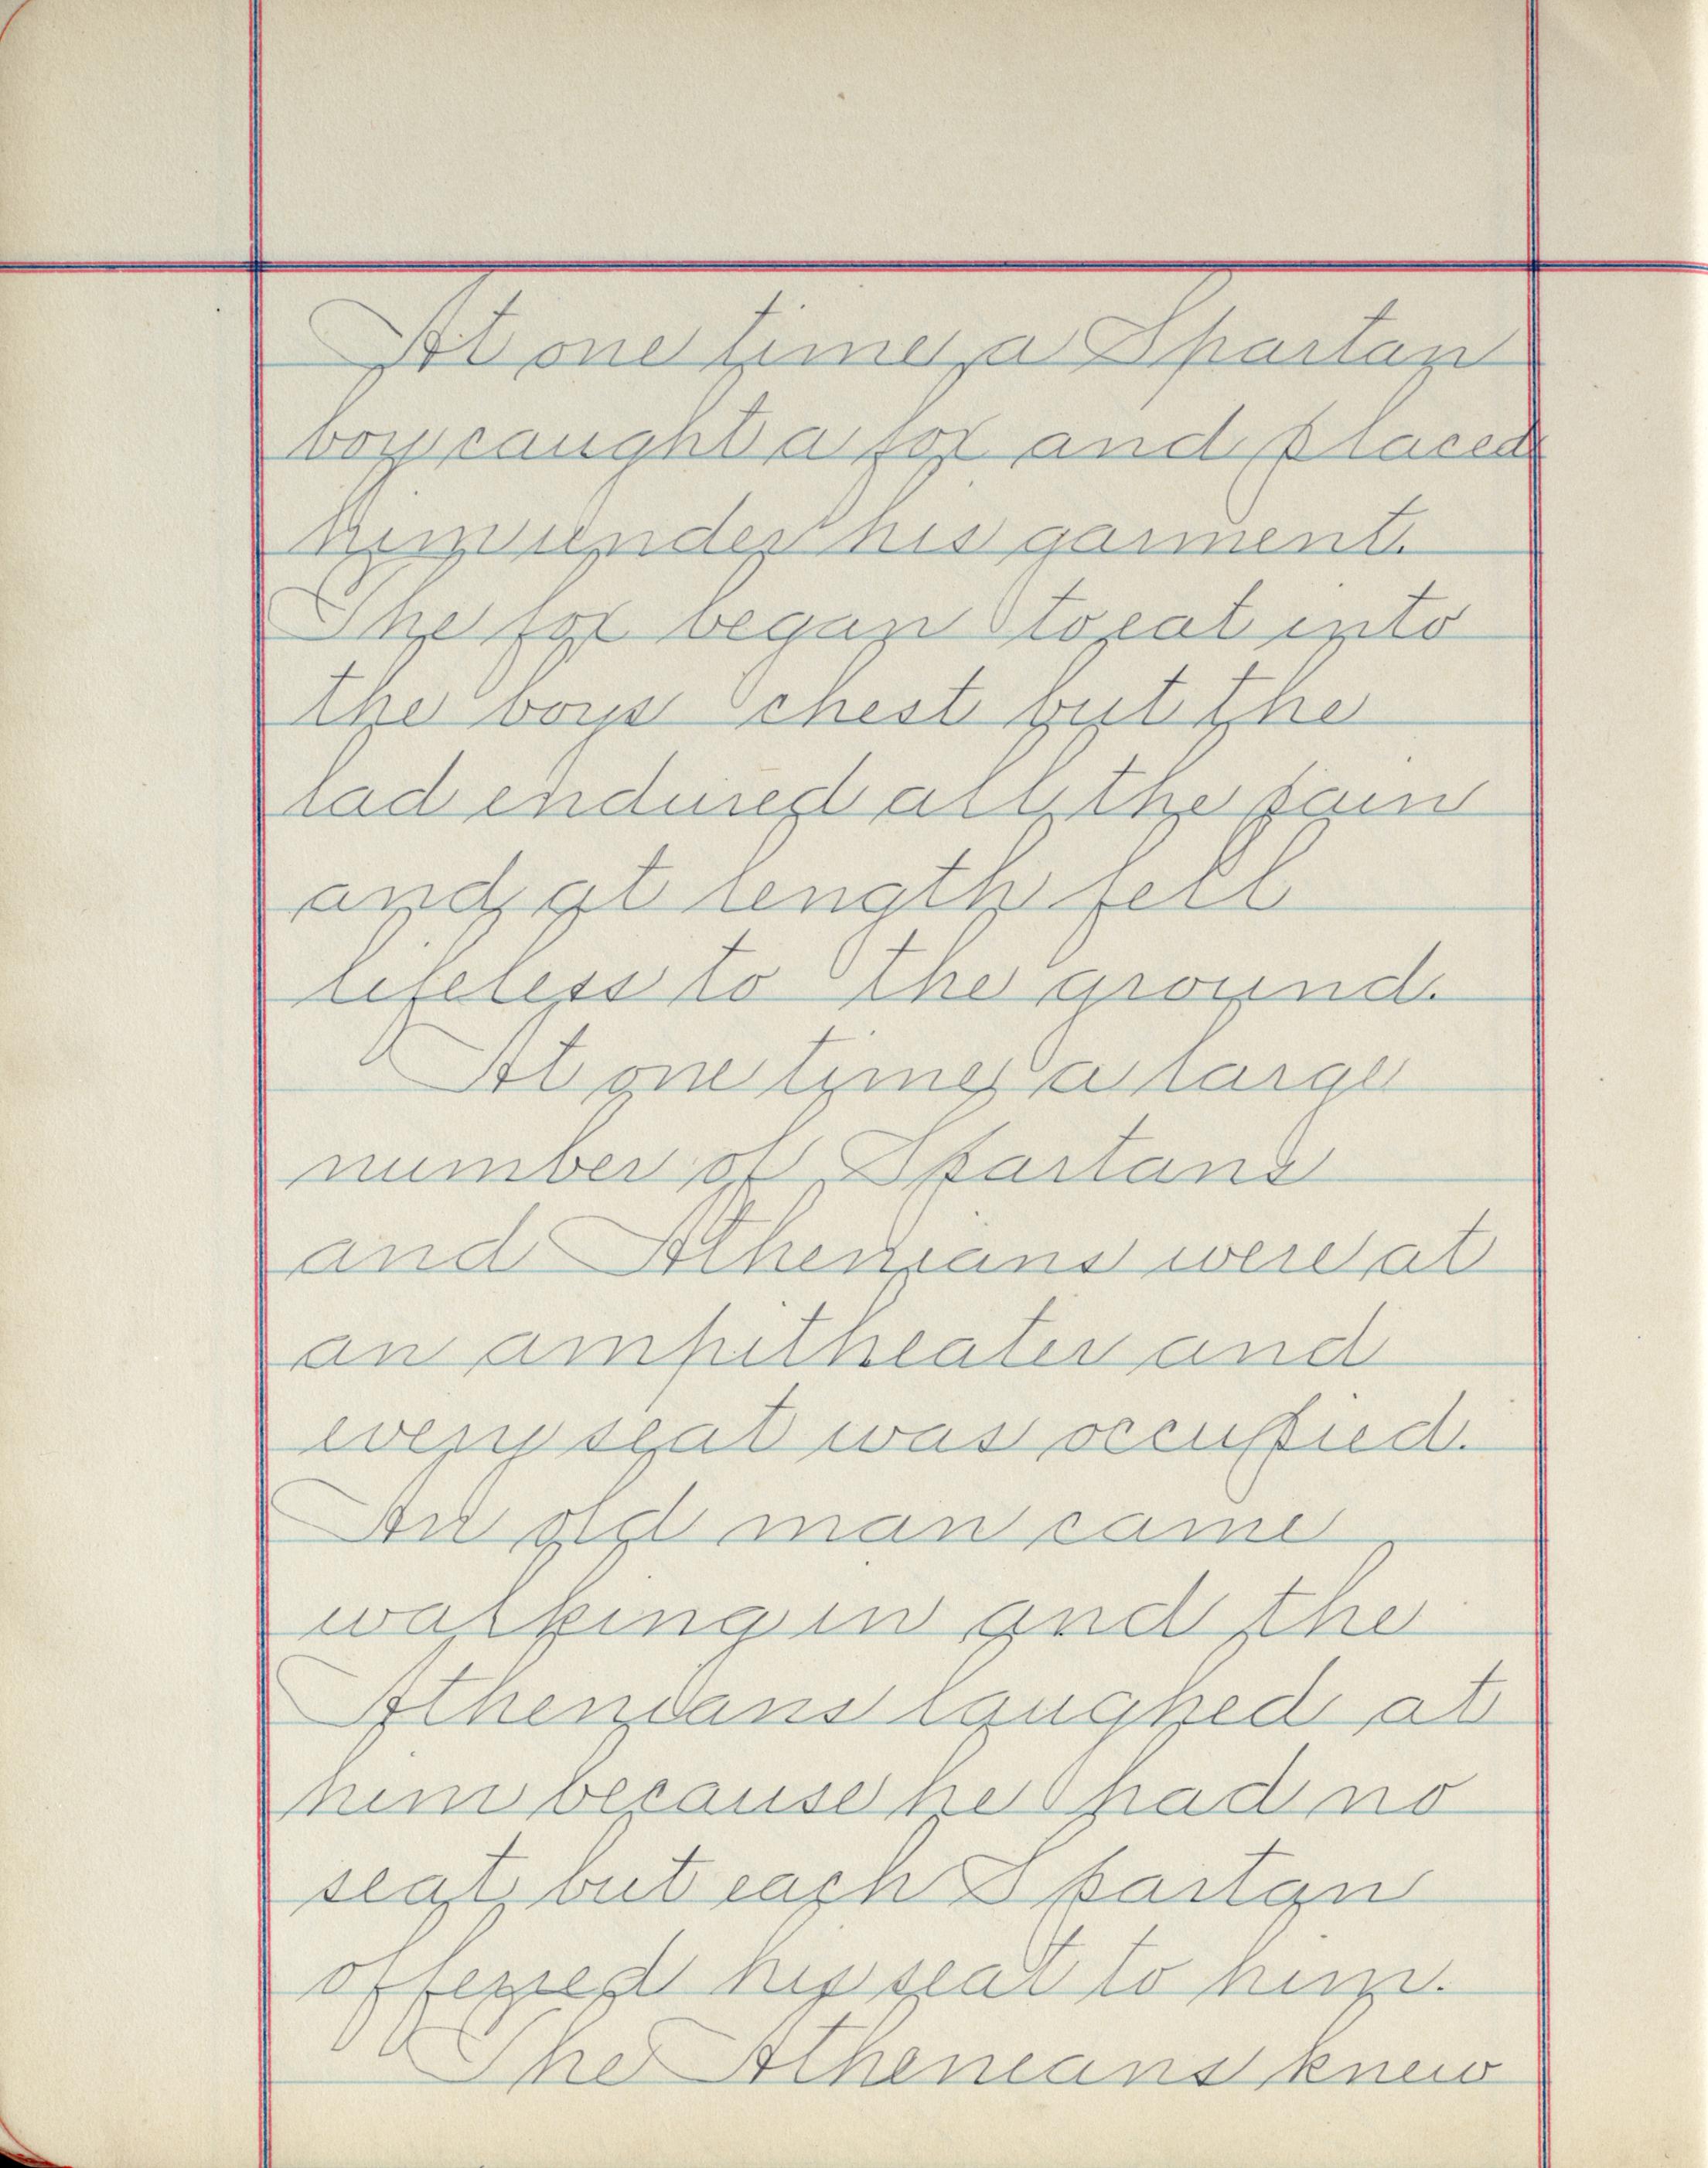 At one time a Spartan
boy caught a fox and placed
him under his garment.
The fox began to eat into
the boys chest but the
lad endured all the pain
and at length fell
lifeless to the ground.
At one time a large
number of Spartans
and Athenians were at
an ampitheater and
every seat was occupied.
An old man came
walking in and the
Athenians laughed at
him because he had no
seat, but each Spartan
offered his seat to him.
The Athenians knew